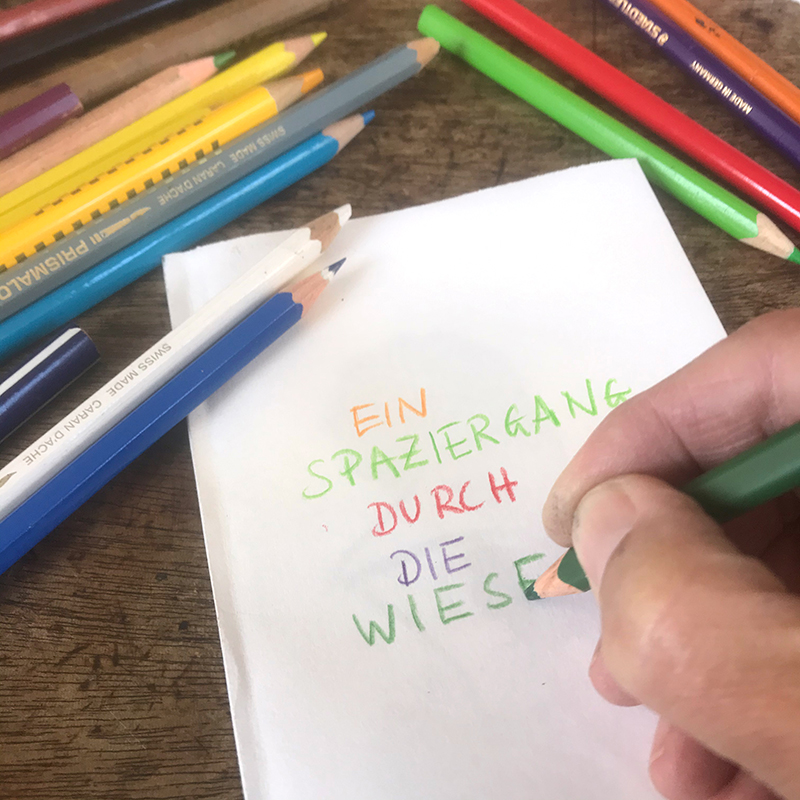 STAEDTLER
MADE IN GERMANY
SWISS MADE CARAN D'ACHE
PRISMALO
SWISS MADE CARAN D'ACHE
EIN
SPAZIERGANG
DURCH
DIE
WIESE